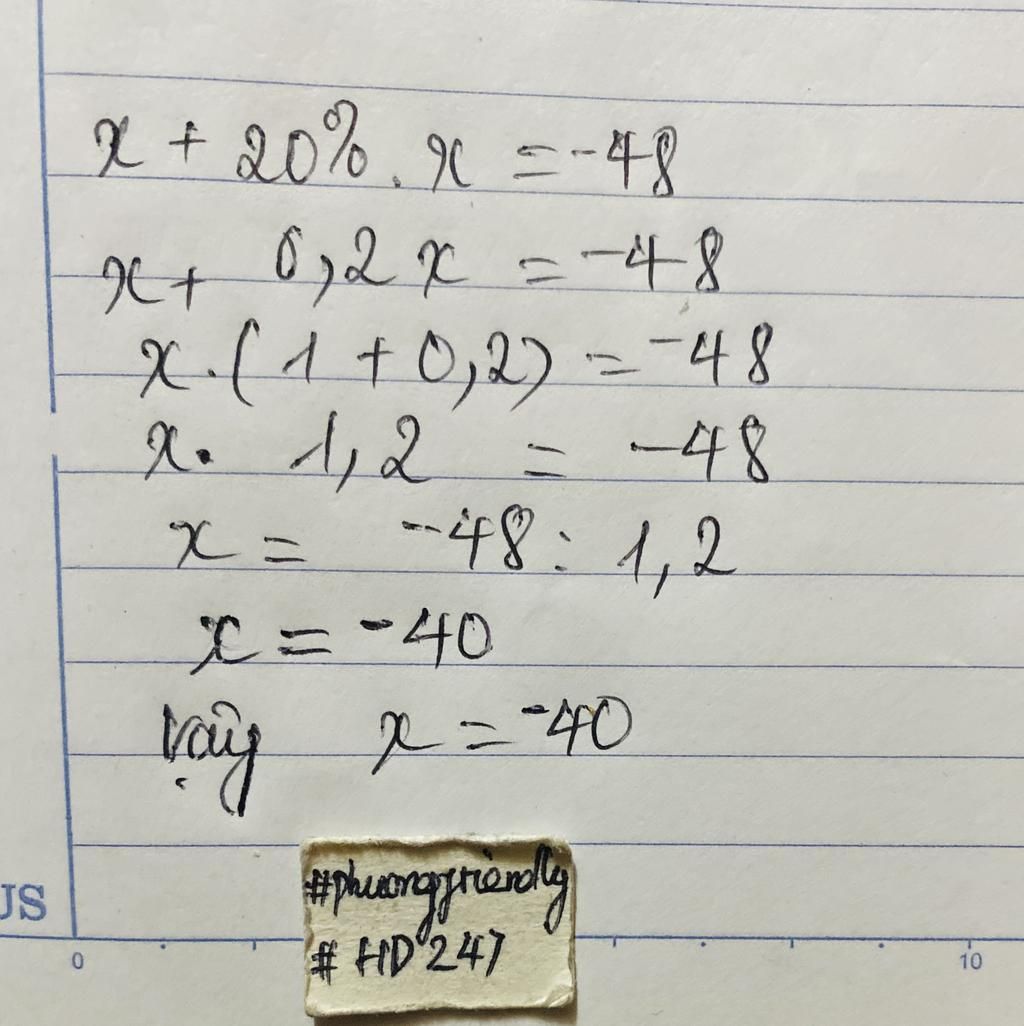 x + 20% . x = -48
x + 0,2 x = -48
x . ( 1 + 0,2) = -48
x . 1,2 = -48
x = -48 : 1,2
x = -40
Vậy x = -40
#phuongfriendly
# HD 247
JS
0 10